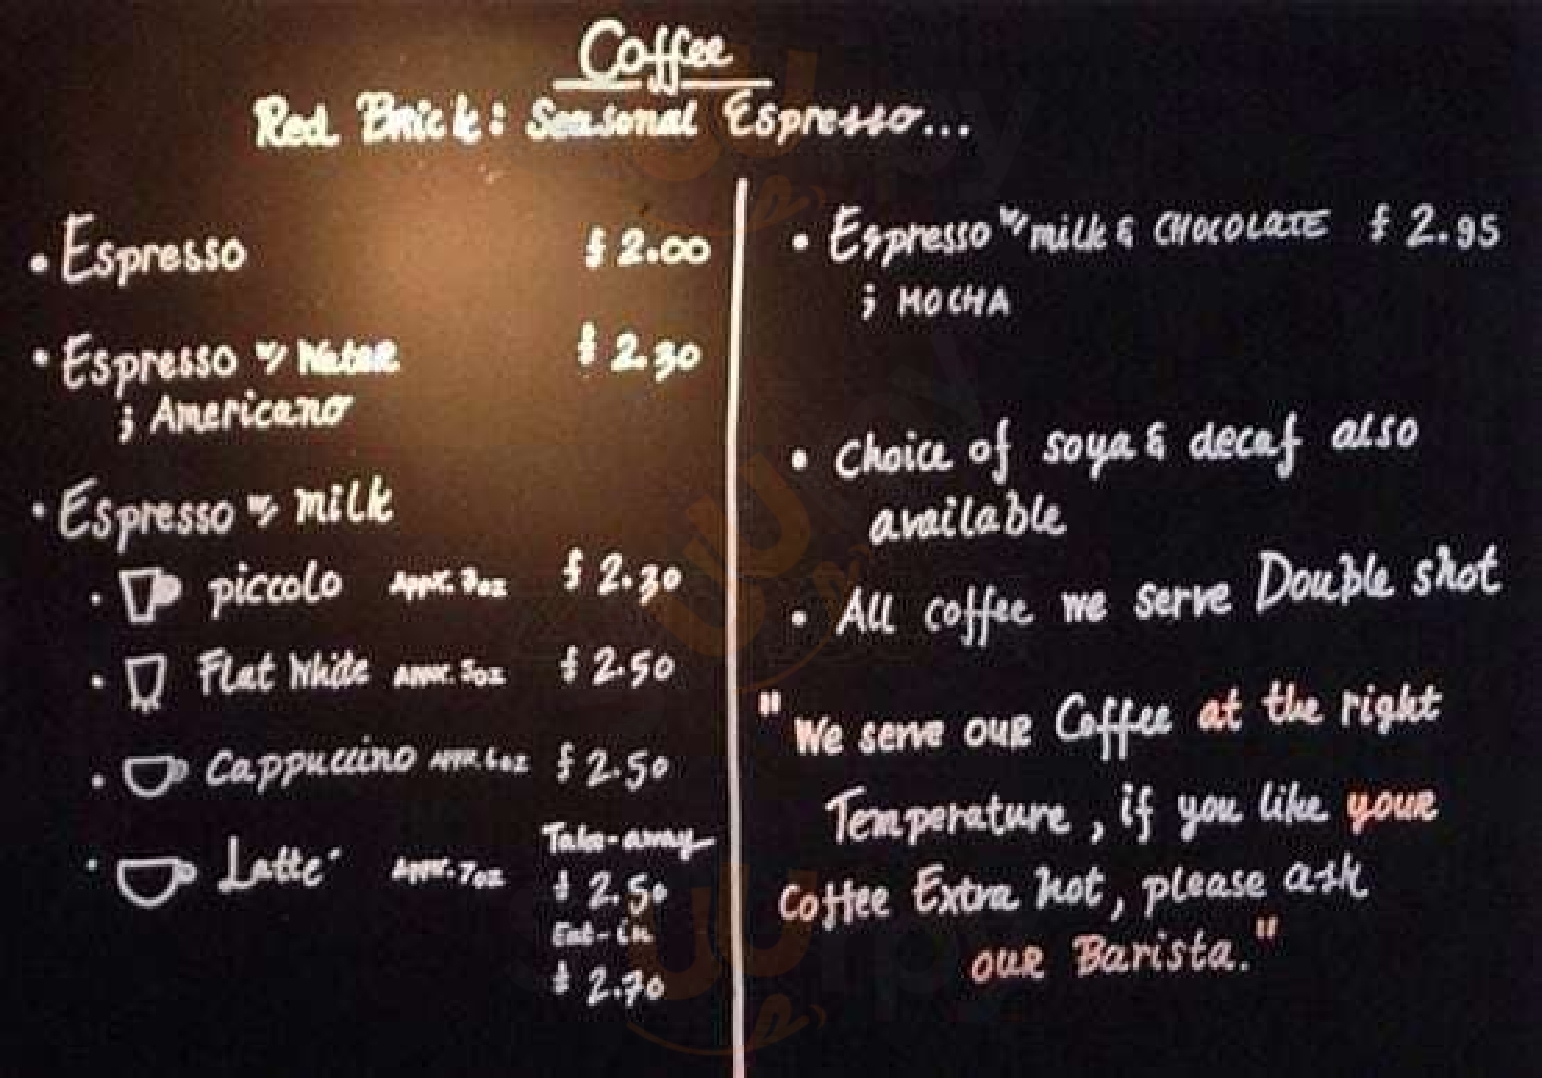 Coffee
Red Brick: Seasonal Espresso...
• Espresso £2.00
• Espresso w/ Water £2.30
; Americano
• Espresso w/ milk
• piccolo Appx. 3oz £2.30
• Flat White Appx. 5oz £2.50
• Cappuccino Appx. 6oz £2.50
• Latte Appx. 7oz Take-away
£2.50
Eat-in
£2.70
• Espresso w/ milk & CHOCOLATE £2.95
; MOCHA
• Choice of soya & decaf also
available
• All coffee we serve Double shot
"We serve our Coffee at the right
Temperature, if you like your
Coffee Extra hot, please ask
our Barista."